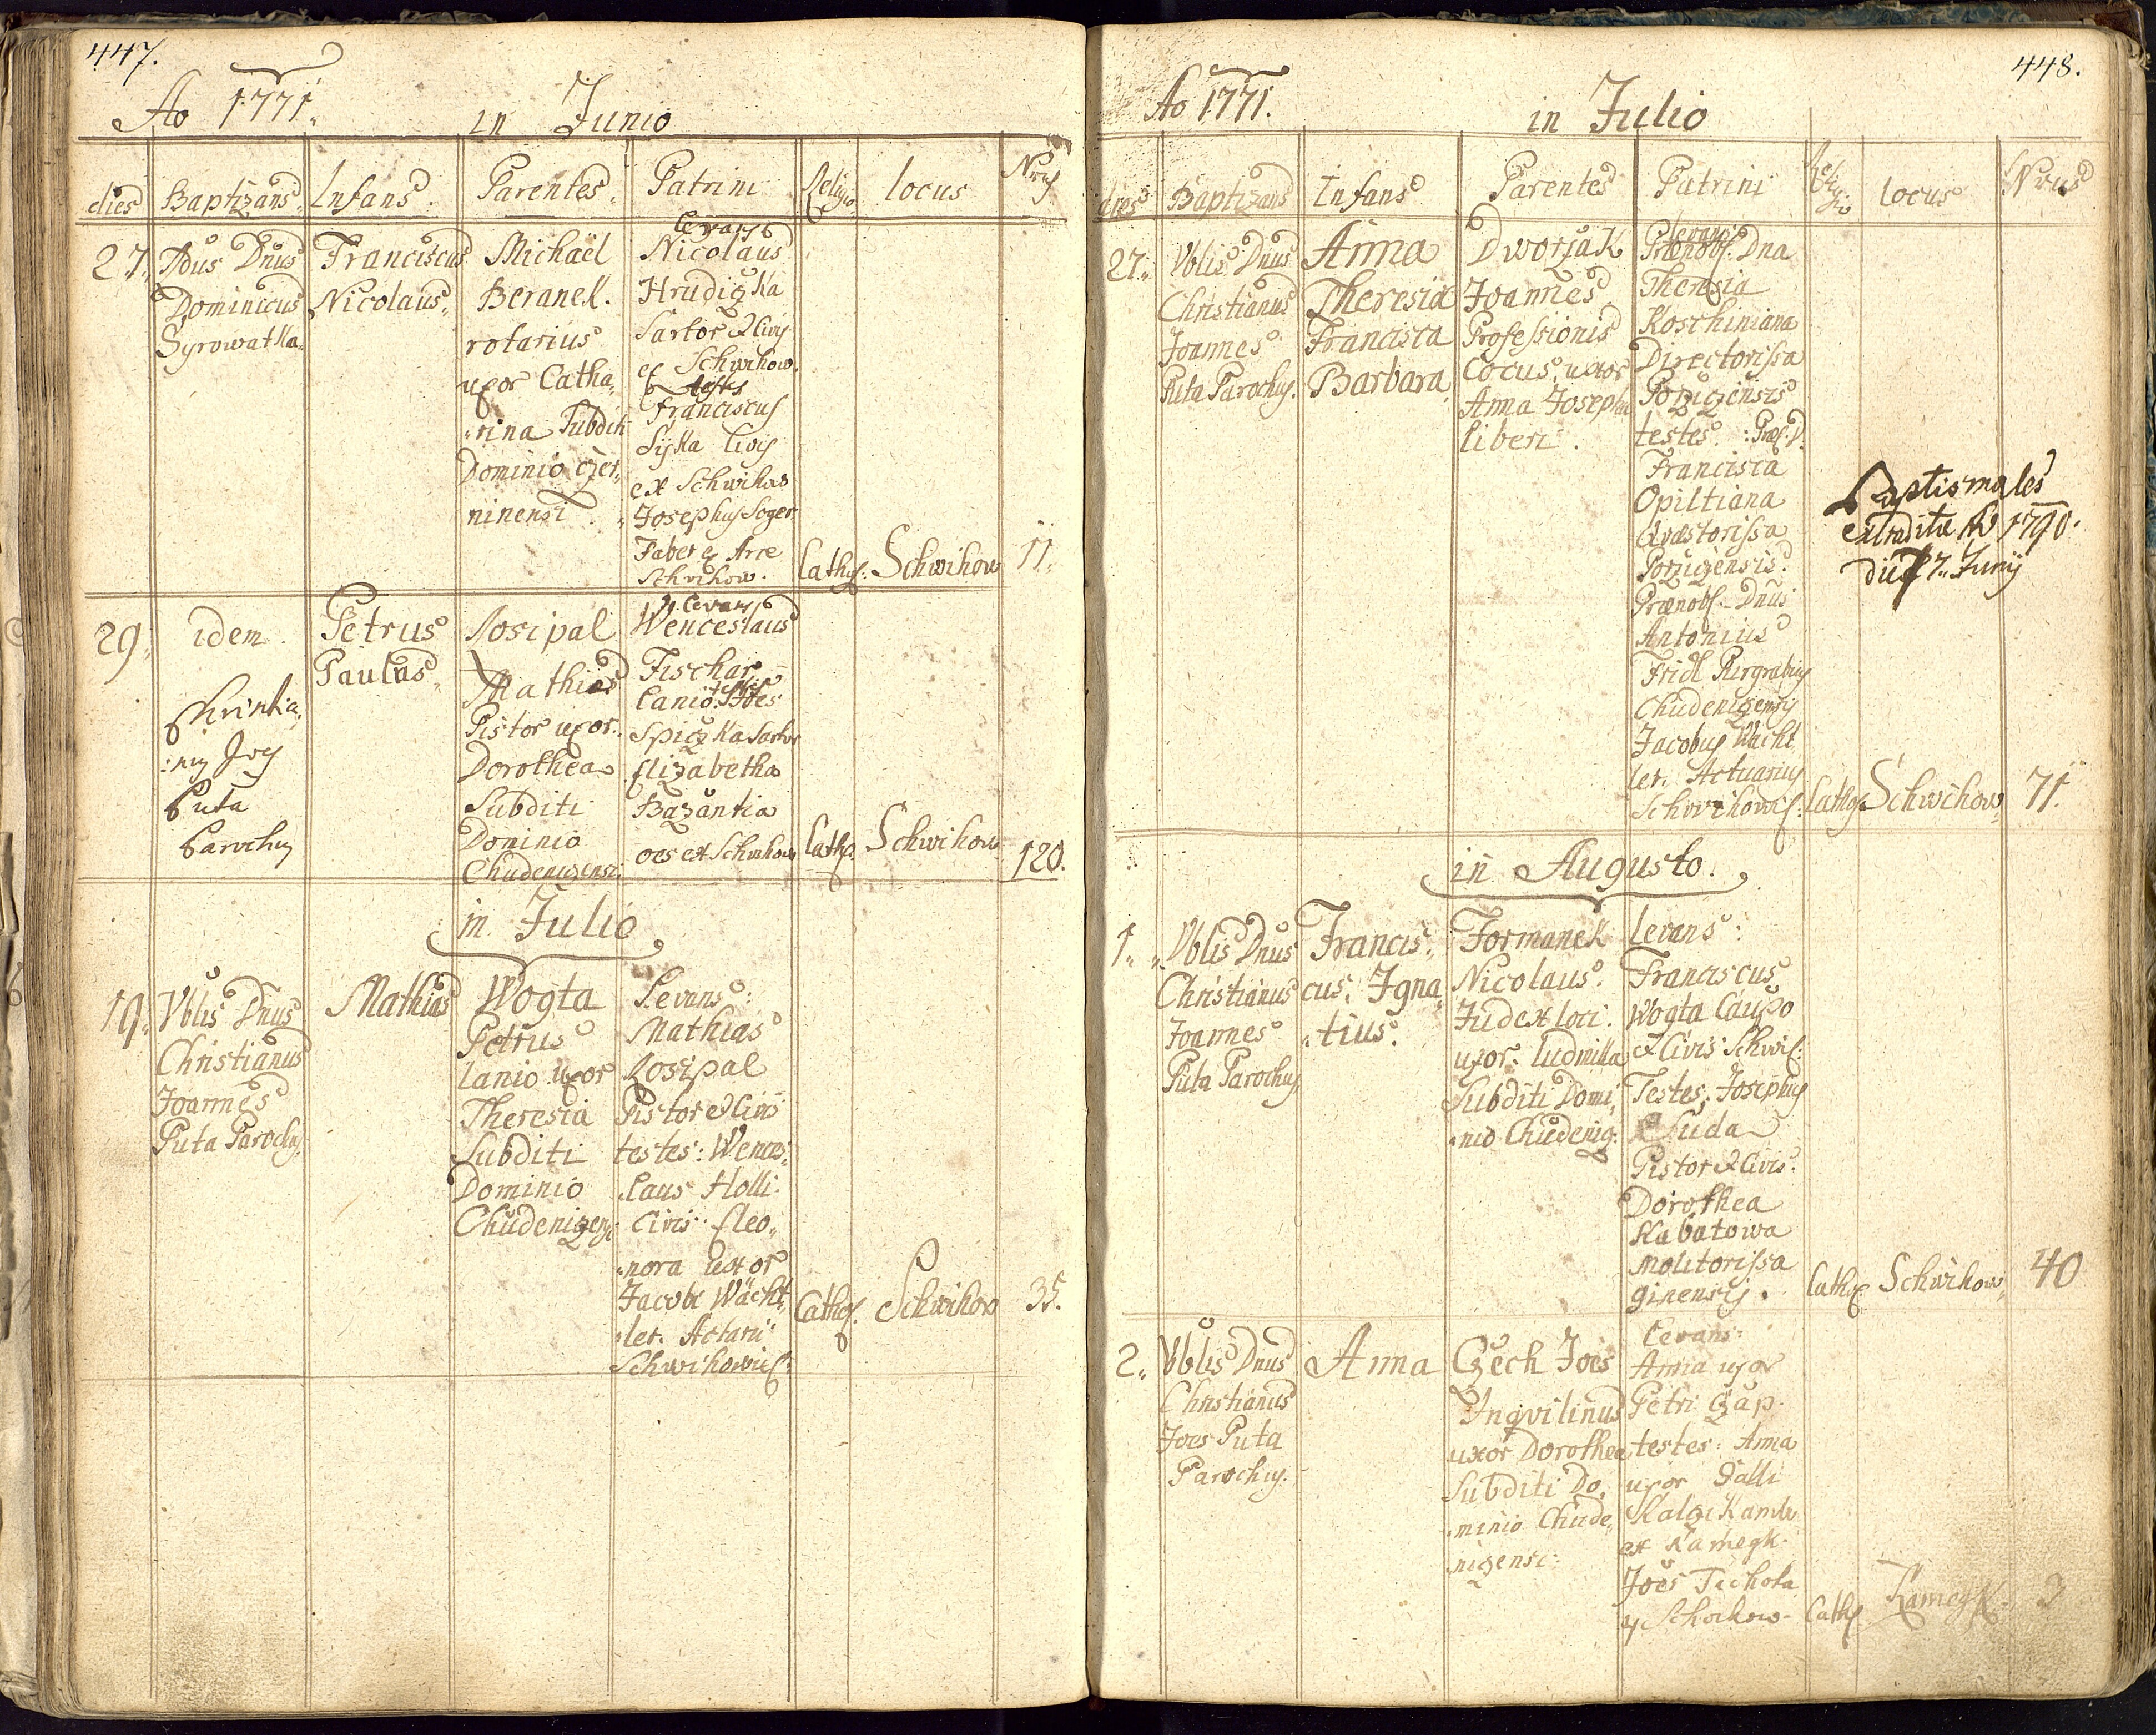 447.
Ao 1771.
in Junio
dies Baptizans Infans Parentes Patrini Religio locus Nrus
27. Adus Dnus
Dominicus
Syrowatka
Franciscus
Nicolaus
Michaël
Beranek.
rotarius
uxor Catha,
rina Subditi
Dominio Czer,
ninensi
levans
Nicolaus
Hrudiczka
Sartor et Civis
ex Schwihow.
testes
Franciscus
Syka Civis
ex Schwihow
Josephus Soger
Faber ex Arce
Schwihow.
Cathol: Schwihow 11.
29. idem.
Christia,
:nus Joes
Puta
Parochus
Petrus
Paulus
Losipal
Mathias
Pistor uxor
Dorothea
Subditi
Dominio
Chudenizensi
levans
Wenceslaus
Fischar
Lanio. testes Joes
Spiczka Sartor
Elizabetha
Bazantia
oes ex Schwihow
Cathol. Schwihow 120.
in Julio
19. Vblis Dnus
Christianus
Joannes
Puta Parochus
Mathias
Wogta
Petrus
lanio uxor
Theresia
Subditi
Dominio
Chudenizensi
Levans:
Mathias
Losipal
Pistor et Civis
testes: Wences,
laus Holli
Civis. Eleo,
nora uxor
Jacobi Wächt,
ler. Actarii
Schwihowies:
Cathol. Schwihow 35.
448.
Ao 1771.
in Julio
dies Baptizans Infans Parentes Patrini Religio locus Nrus
27. Vblis Dnus
Christianus
Joannes
Puta Parochus.
Anna
Theresia
Francisca
Barbara
Dworzak
Joannes
Professionis
Cocus, uxor
Anna Josepha
liberi.
levans
Prænobl. Dna
Theresia
Koschiniana
Directorissa
Porziczensis
testes: Præf. D.
Francisca
Opiltiana
Quæstorissa
Porziczensis
Prænobl. Dnus
Antonius
Fridl Purgrabius
Chudenizensis
Jacobus Wächt
ler. Actuarius
Schwihowis:
Baptismales
extraditæ Ao 1790.
die 7. Junij
Cathol Schwihow 71.
in Augusto.
1. Vblis Dnus
Christianus
Joannes
Puta Parochus
Francis,
cus, Igna,
tius.
Formanek
Nicolaus.
Judex loci.
uxor: ludmilla
Subditi Domi,
nio Chudeniz.
levans:
Franciscus
Wogta Caupo
et Civis Schwi:
Testes, Josephus
Suda
Pistor et Civis.
Dorothea
Kabatowa
molitorissa
ginensis.
Cathol Schwihow 40
2. Vblis Dnus
Christianus
Joes Puta
Parochus.
Anna
Czech Joes
Inqvilinus
uxor Dorothea
Subditi Do,
minio Chude,
nizensi:
levans:
Anna uxor
Petri Czap.
testes: Anna
uxor Galli
ex Kamegk.
Joes Tichota
ex Schwihow
Cath Kamegk. 3